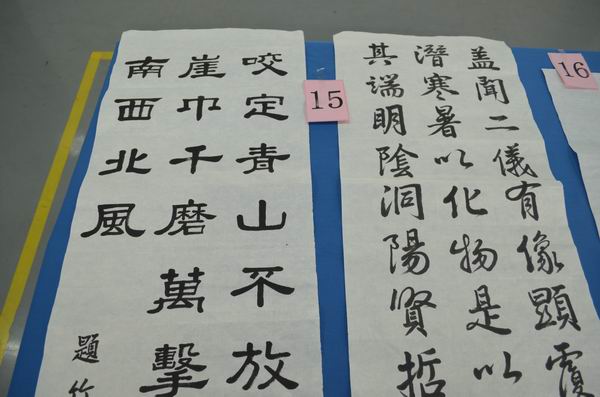 咬定青山不放
崖中千磨萬擊
南西北風
題竹
15
盖聞二儀有像顯覆
潛寒暑以化物是以
其端明陰洞陽賢哲
16